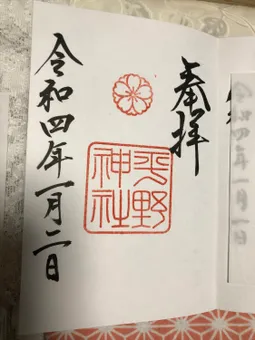 令和四年一月一日
奉拝
平野
神社
令和四年一月二日